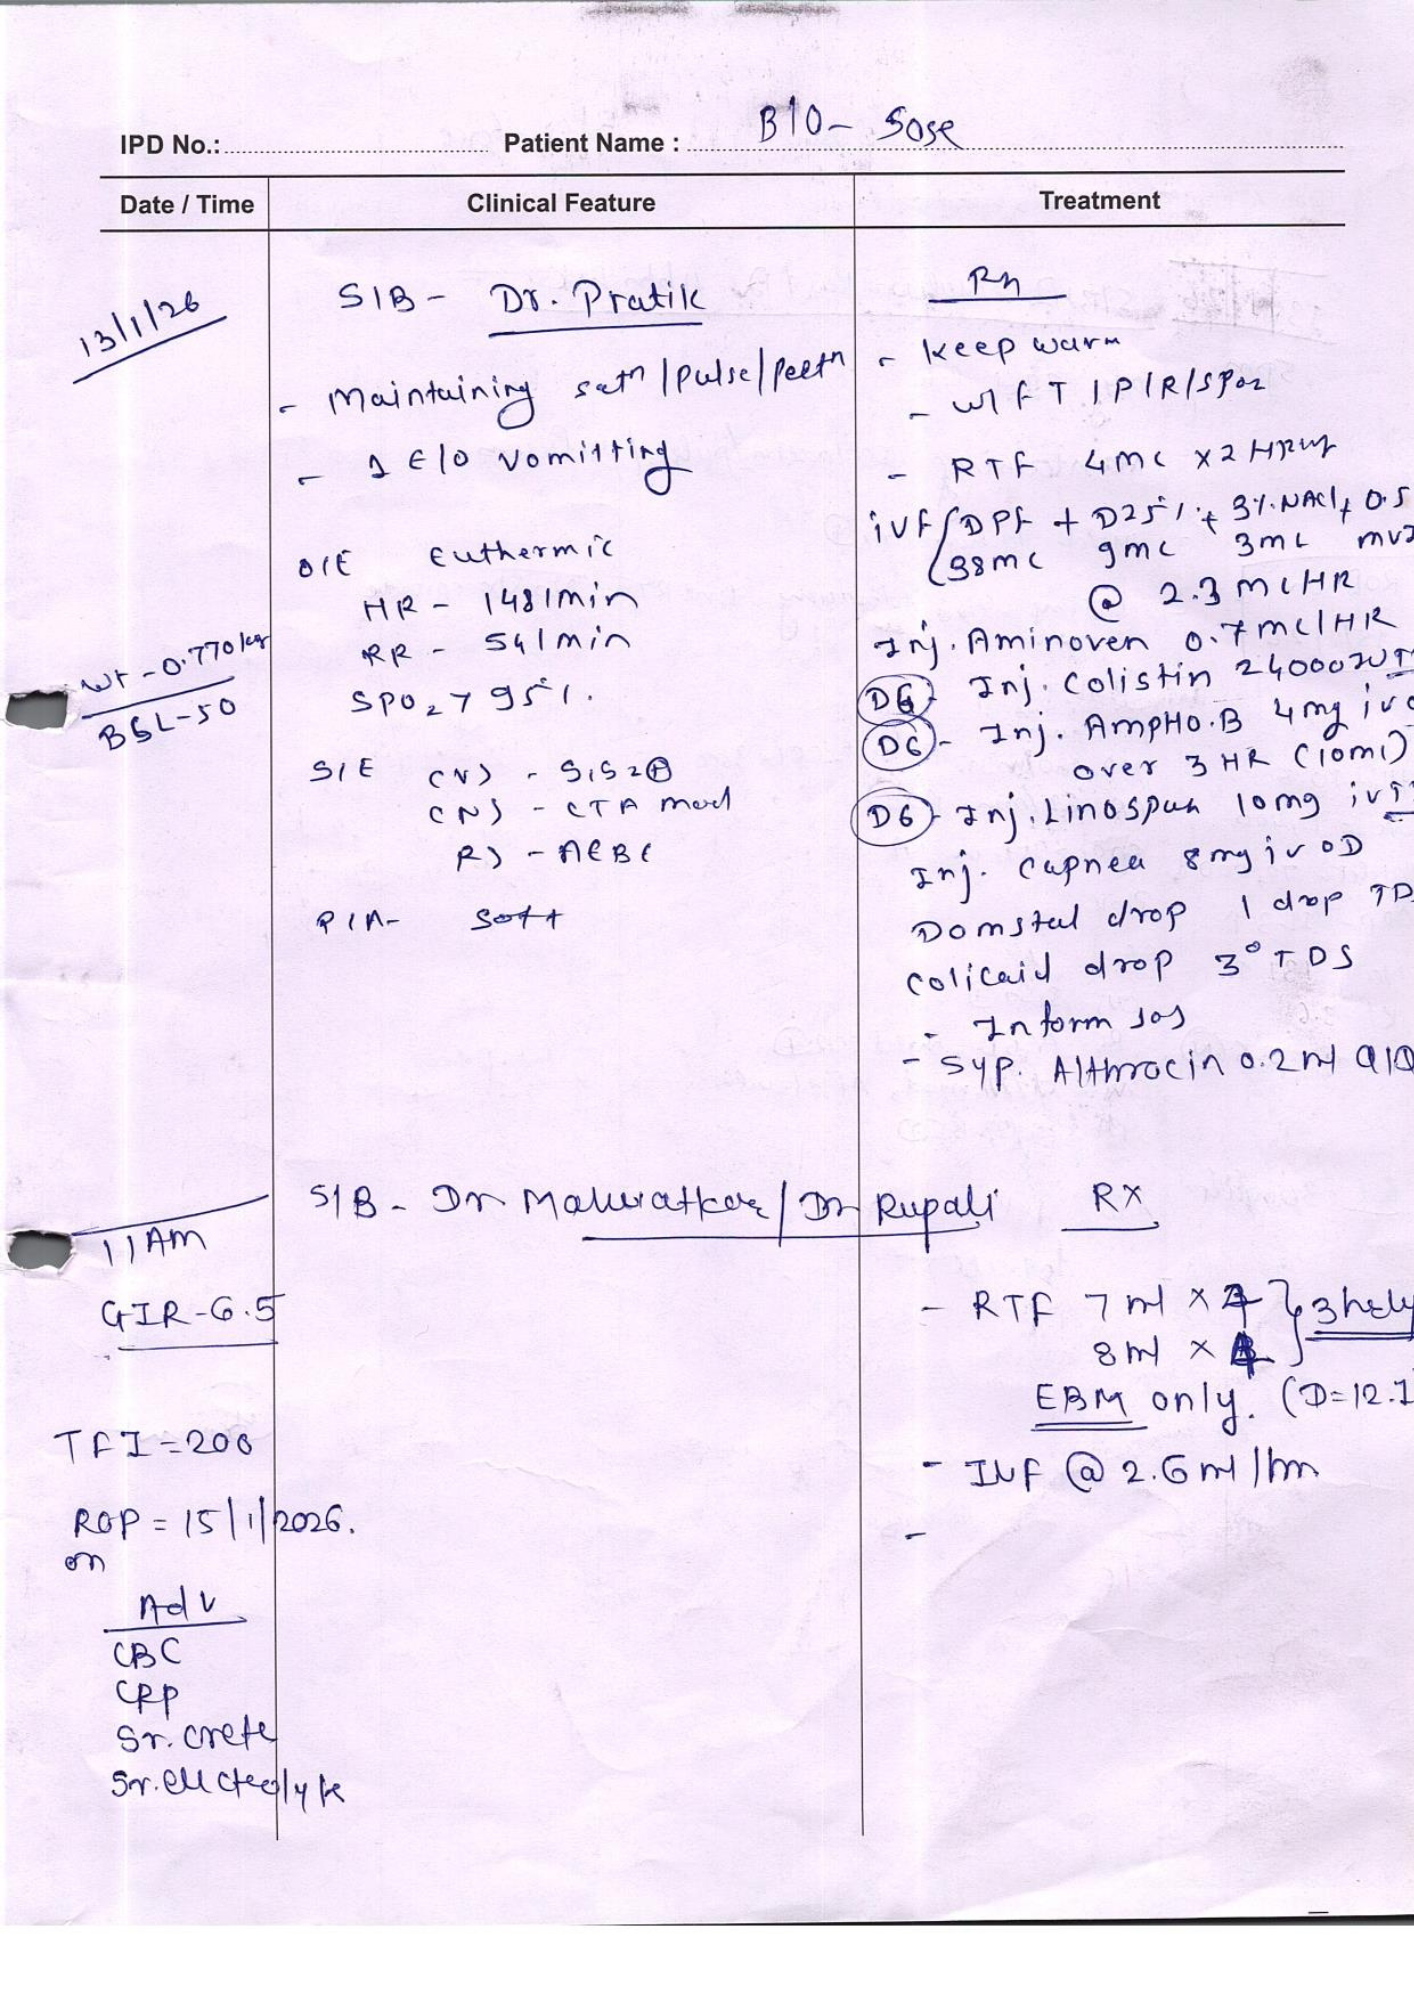 IPD No.: Patient Name : B/O- Sose
Date / Time Clinical Feature Treatment
13/1/26
S/B - Dr. Pratik
- Maintaining satn/pulse/perfn
- 1 E/O vomitting
O/E Euthermic
HR - 148/min
RR - 54/min
SPO2 > 95%.
wt - 0.770kg
BSL-50
S/E CVS - S1S2⊕
CNS - CTA mod
RS - AEBE
P/A- soft
Rx
- Keep warm
- W/F T/P/R/SPO2
- RTF 4ml x2HRly
IVF DPF + D25%+ 3%.NACl+ 0.5
38ml 9ml 3ml MVI
@ 2.3ml/HR
Inj. Aminoven 0.7ml/HR
D6 - Inj. Colistin 24000IU
D6 - Inj. AmpHo.B 4mg iv
over 3 HR (10ml)
D6 - Inj. Linospan 10mg iv
Inj. Capnea 8mg iv OD
Domstal drop 1 drop TD
Colicaid drop 3° TDS
- Inform sos
- Syp. Althrocin 0.2ml QID
11 AM
S/B - Dr / Dr Rupali
Rx
GIR-6.5
- RTF 7ml x
8ml x 4 3hrly
EBM only. (D=12.1
TFI=200
- IVF @ 2.6ml/hr
-
ROP = 15/1/2026.
on
Adv
CBC
CRP
Sr. creat
Sr. electrolyte